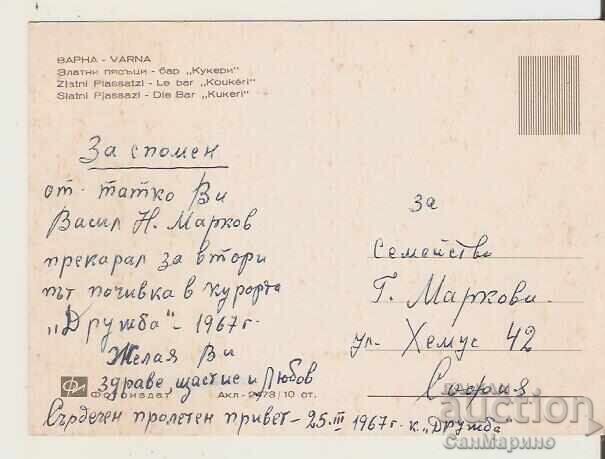 ВАРНА - VARNA
Златни пясъци - бар „Кукери"
Zlatni Piassatzi - Le bar „Koukéri"
Slatni Pjassazi - Die Bar „Kukeri"
За спомен
от татко Ви
Васил Н. Марков
прекарал за втори
път почивка в курорта
„Дружба" - 1967г.
Желая Ви
здраве щастие и Любов
Сърдечен пролетен привет - 25.III 1967г. к. „Дружба"
Фотоиздат Акл - 2073 / 10 от.
за
семейство
Г. Маркови.
ул. Хемус 42
София
auction
СанМарино